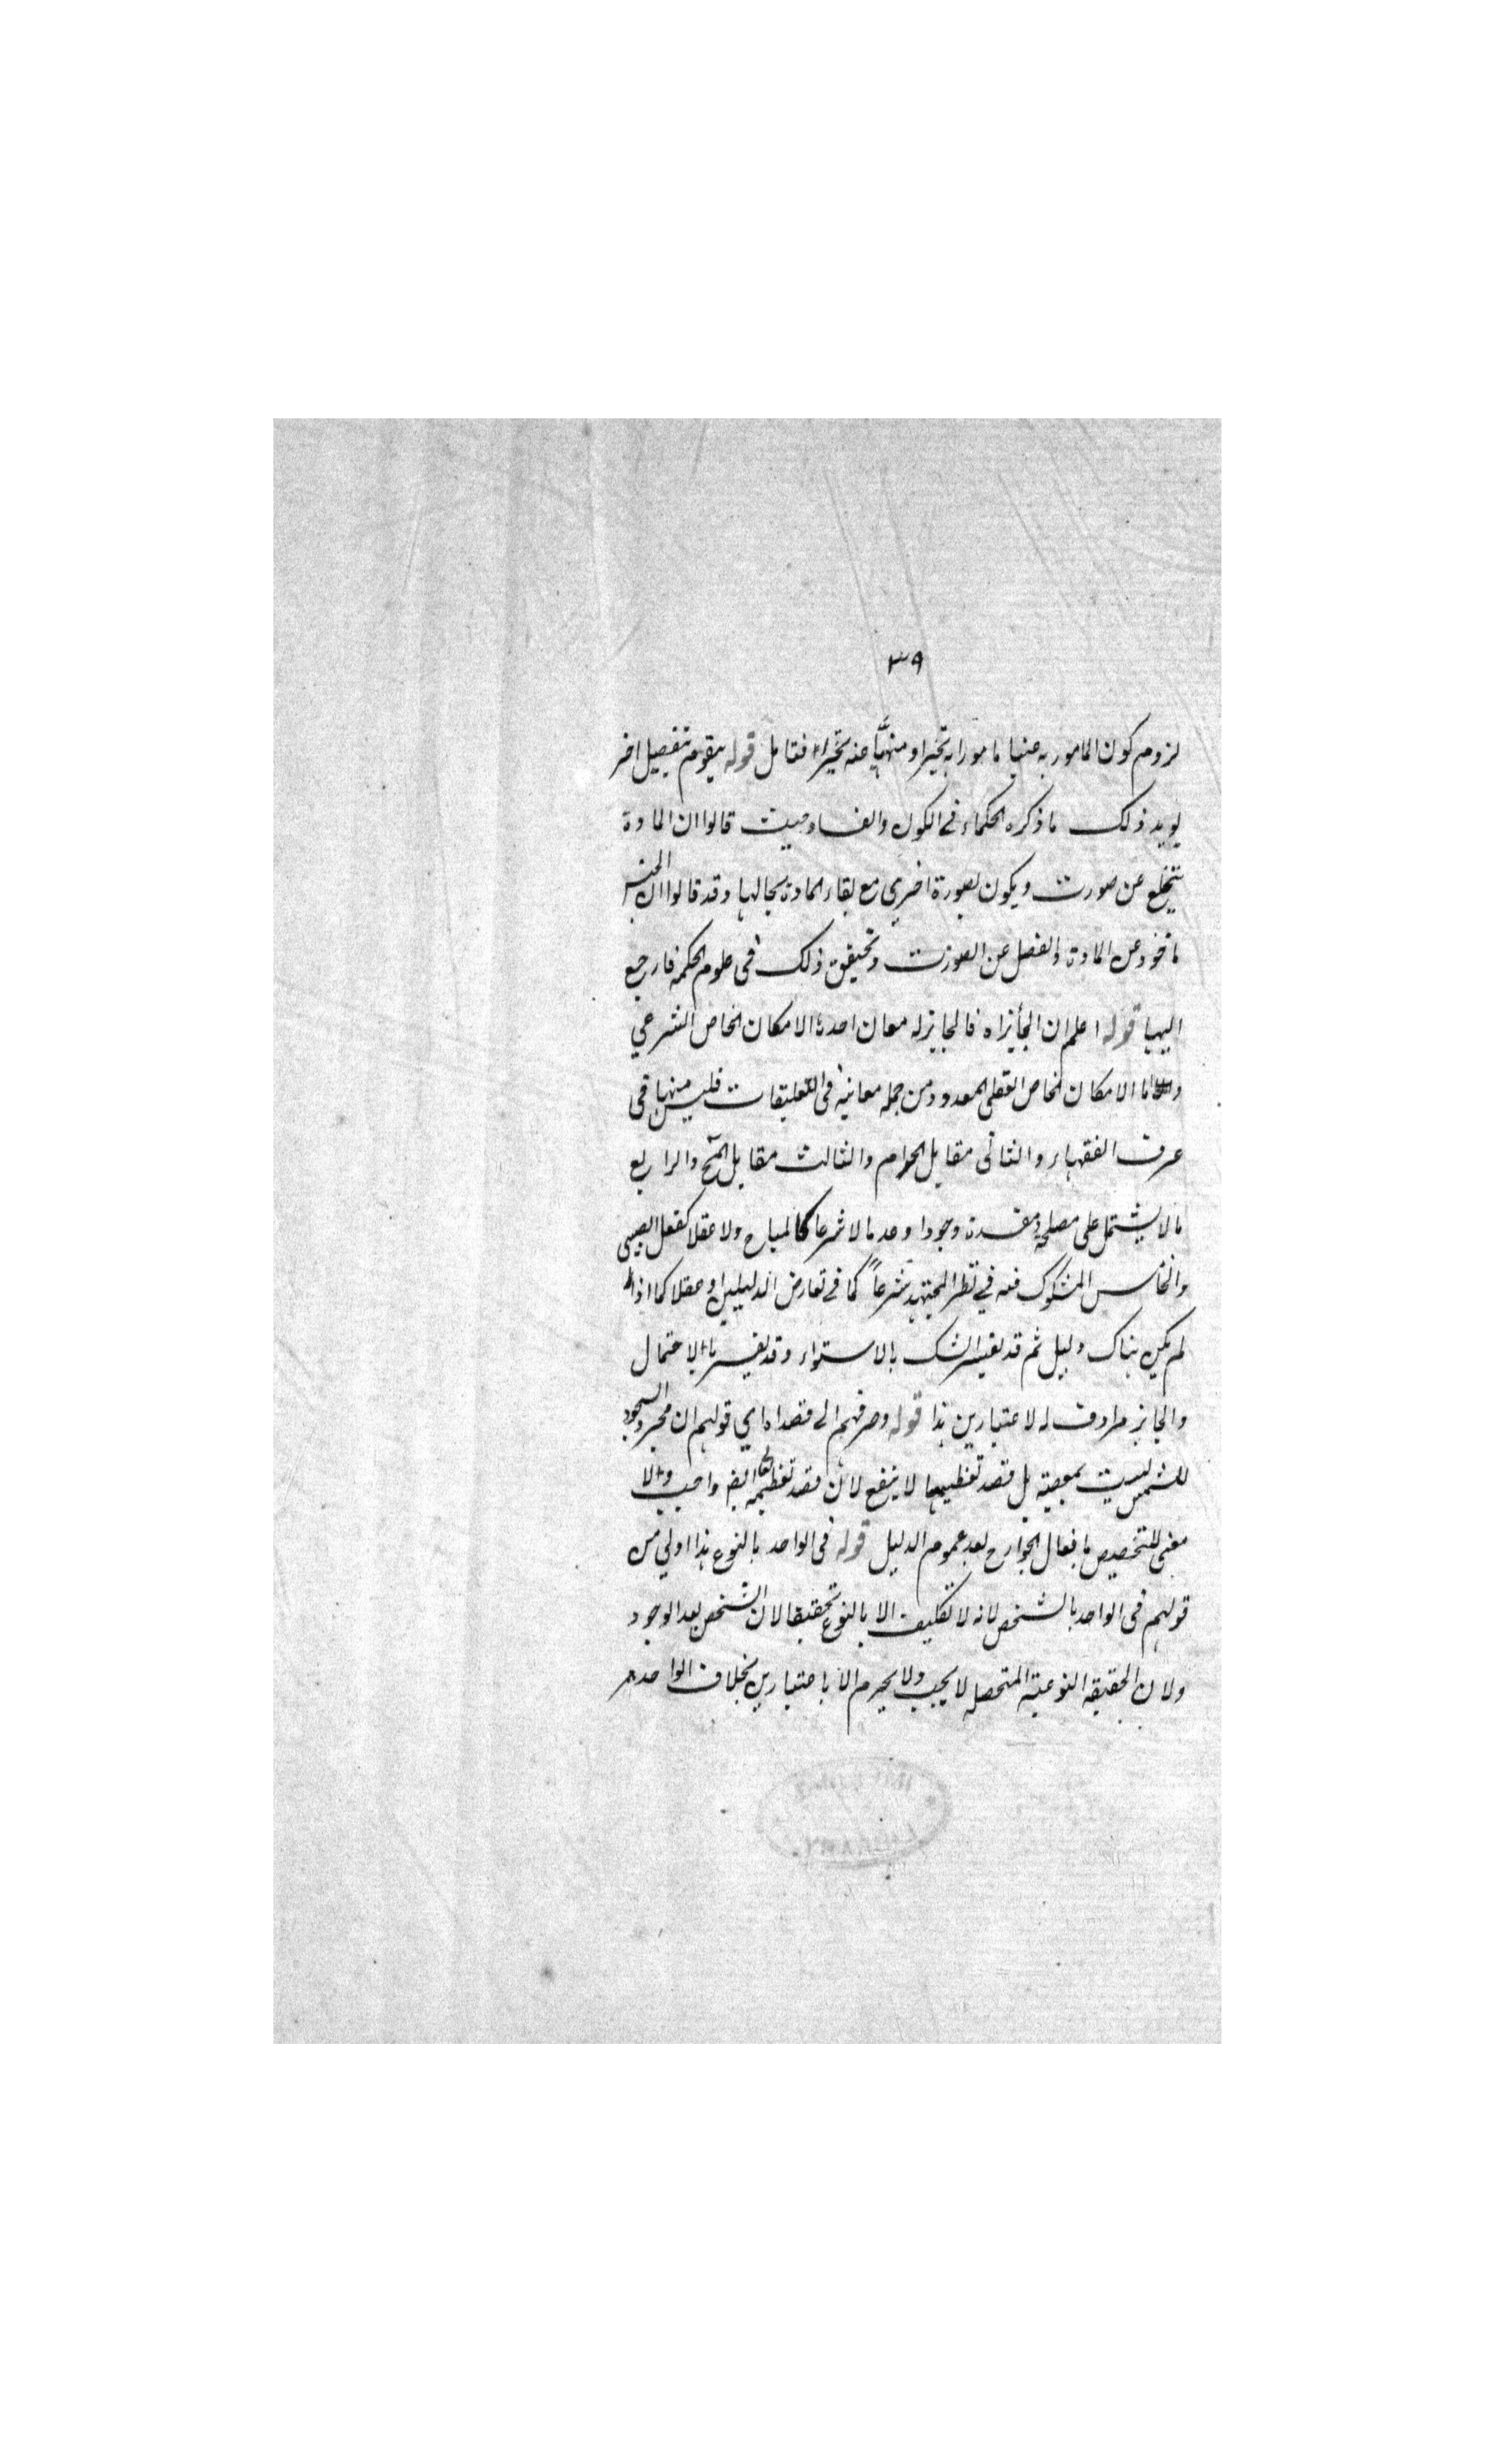 ٣٩
لزوم كون المامور به عنيا مامورا به تخيرا ومنهيًّا عنه تخيرا فتامل قوله يتقوم بفصيل اخر
يويد ذلك ما ذكره الحكماء فى الكون والفساد حيث قالوا ان المادة
تنخلع عن صورت ويكون بصورة اخرى مع بقاء المادة بحالها وقد قالوا ان الجنس
ماخوذ عن المادة والفصل عن الصورت وتحقيق ذلك فى علوم الحكمة فارجع
اليها قوله اعلم ان الجائز اه فالجايز له معان احدها الامكان الخاص الشرعي
واما الامكان الخاص العقلى المعدود من جملة معانيه فى التعليقات فليس منها فى
عرف الفقهاء والثانى مقابل الحرام والثالث مقابل القبح والرابع
مالا يشتمل على مصلحة ومفسدة وجودا وعدما لا شرعا كالمباح ولا عقلا كفعل الصبى
والخامس المشكوك فيه في نظر المجتهد شرعاً كما فى تعارض الدليلين او عقلا كما اذا
لم يكن هناك دليل ثم قد يفسر الشك بالاستواء وقد يفسر بالاحتمال
والجايز مرادف له لاعتبارين هذا قوله وصرفهم الى قصد اه اي قولهم ان مجرد السجود
للشمس ليست بمعصية بل قصد تعظيمها لا ينفع لان قصد تعظيمه تعالى ايضا واجب والا
معنى للتخصيص بافعال الجوارح بعد عموم الدليل قوله فى الواحد بالنوع هذا اولي من
قولهم فى الواحد بالشخص لانه لا تكليف الا بالنوع تحقيقا لان الشخص بعد الوجود
ولان الحقيقة النوعية المتحصله لا يجب ولا يحرم الا باعتبارين بخلاف الواحد